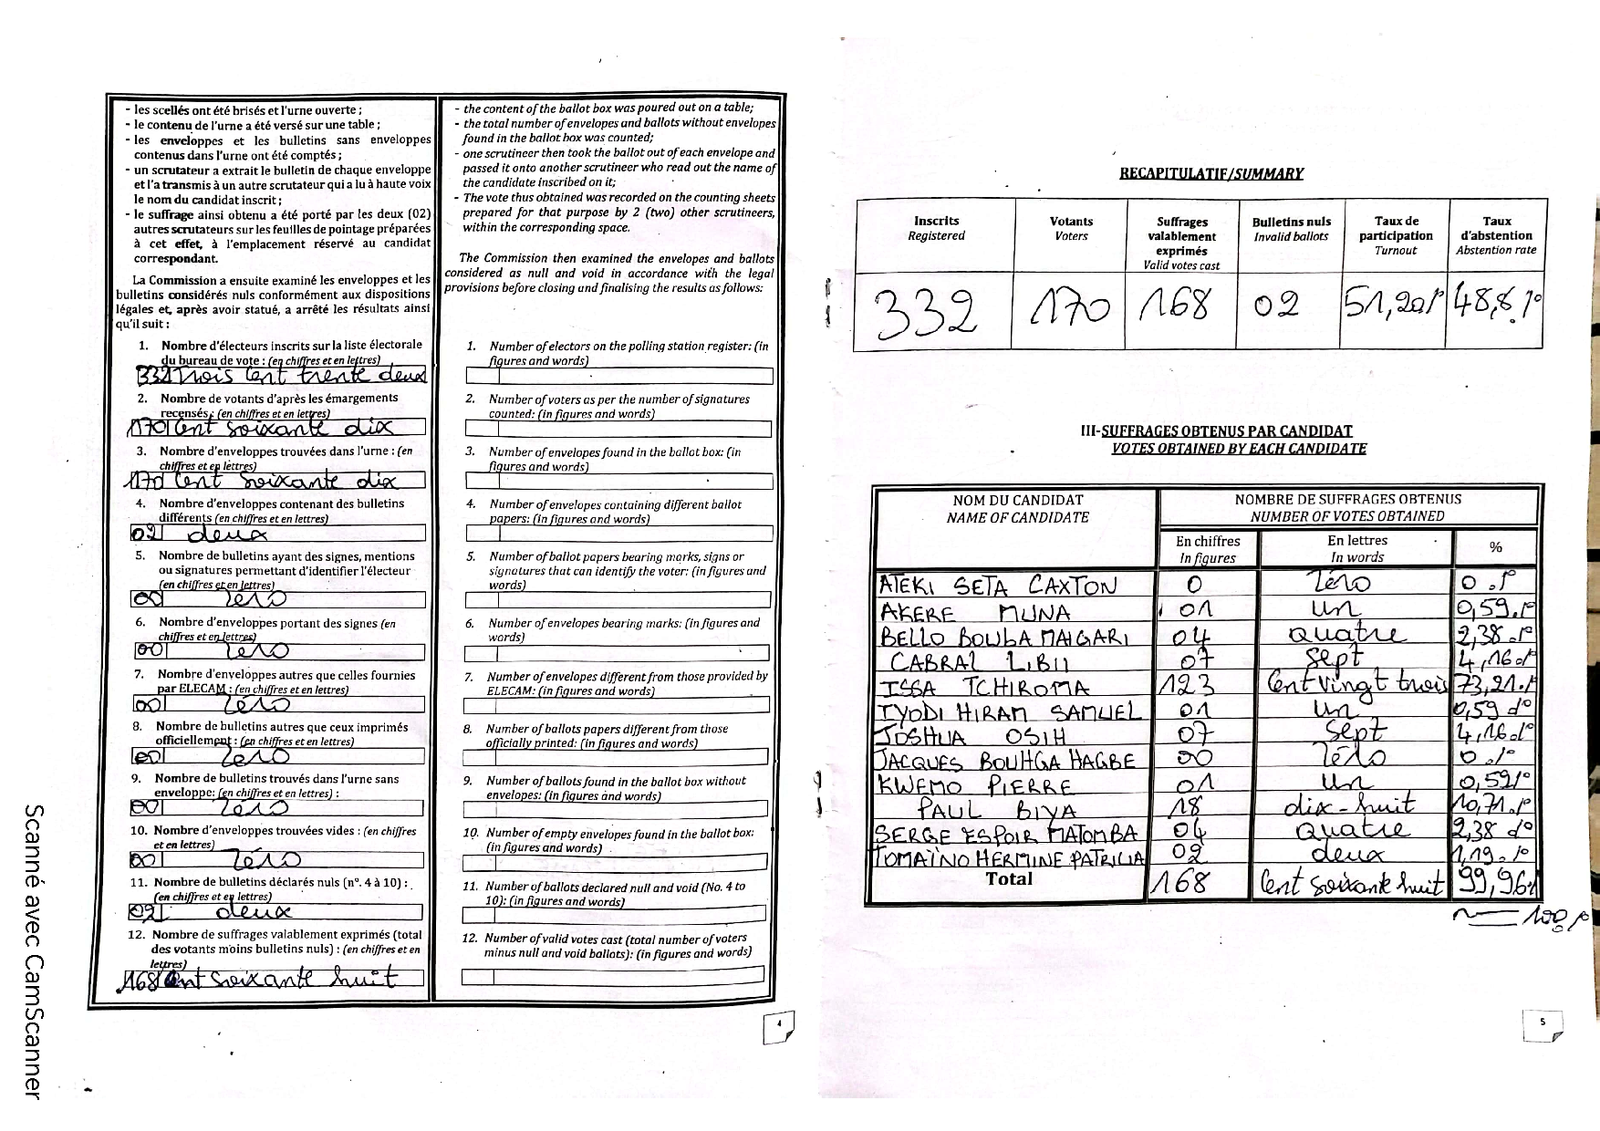 - les scellés ont été brisés et l'urne ouverte ;
- le contenu de l'urne a été versé sur une table ;
- les enveloppes et les bulletins sans enveloppes
contenus dans l'urne ont été comptés ;
- un scrutateur a extrait le bulletin de chaque enveloppe
et l'a transmis à un autre scrutateur qui a lu à haute voix
le nom du candidat inscrit ;
- le suffrage ainsi obtenu a été porté par les deux (02)
autres scrutateurs sur les feuilles de pointage préparées
à cet effet, à l'emplacement réservé au candidat
correspondant.
La Commission a ensuite examiné les enveloppes et les
bulletins considérés nuls conformément aux dispositions
légales et, après avoir statué, a arrêté les résultats ainsi
qu'il suit :
1. Nombre d'électeurs inscrits sur la liste électorale
du bureau de vote : (en chiffres et en lettres)
332 Trois Cent trente deux
2. Nombre de votants d'après les émargements
recensés : (en chiffres et en lettres)
170 Cent soixante dix
3. Nombre d'enveloppes trouvées dans l'urne : (en
chiffres et en lettres)
170 Cent soixante dix
4. Nombre d'enveloppes contenant des bulletins
différents (en chiffres et en lettres)
02 deux
5. Nombre de bulletins ayant des signes, mentions
ou signatures permettant d'identifier l'électeur
(en chiffres et en lettres)
00 Zéro
6. Nombre d'enveloppes portant des signes (en
chiffres et en lettres)
00 Zéro
7. Nombre d'enveloppes autres que celles fournies
par ELECAM : (en chiffres et en lettres)
00 Zéro
8. Nombre de bulletins autres que ceux imprimés
officiellement : (en chiffres et en lettres)
00 Zéro
9. Nombre de bulletins trouvés dans l'urne sans
enveloppe: (en chiffres et en lettres) :
00 Zéro
10. Nombre d'enveloppes trouvées vides : (en chiffres
et en lettres)
00 Zéro
11. Nombre de bulletins déclarés nuls (n°. 4 à 10) :
(en chiffres et en lettres)
02 deux
12. Nombre de suffrages valablement exprimés (total
des votants moins bulletins nuls) : (en chiffres et en
lettres)
168 Cent soixante huit
- the content of the ballot box was poured out on a table;
- the total number of envelopes and ballots without envelopes
found in the ballot box was counted;
- one scrutineer then took the ballot out of each envelope and
passed it onto another scrutineer who read out the name of
the candidate inscribed on it;
- The vote thus obtained was recorded on the counting sheets
prepared for that purpose by 2 (two) other scrutineers,
within the corresponding space.
The Commission then examined the envelopes and ballots
considered as null and void in accordance with the legal
provisions before closing and finalising the results as follows:
1. Number of electors on the polling station register: (in
figures and words)
2. Number of voters as per the number of signatures
counted: (in figures and words)
3. Number of envelopes found in the ballot box: (in
figures and words)
4. Number of envelopes containing different ballot
papers: (in figures and words)
5. Number of ballot papers bearing marks, signs or
signatures that can identify the voter: (in figures and
words)
6. Number of envelopes bearing marks: (in figures and
words)
7. Number of envelopes different from those provided by
ELECAM: (in figures and words)
8. Number of ballots papers different from those
officially printed: (in figures and words)
9. Number of ballots found in the ballot box without
envelopes: (in figures and words)
10. Number of empty envelopes found in the ballot box:
(in figures and words)
11. Number of ballots declared null and void (No. 4 to
10): (in figures and words)
12. Number of valid votes cast (total number of voters
minus null and void ballots): (in figures and words)
4
Scanné avec CamScanner
RECAPITULATIF/SUMMARY
Inscrits Votants Suffrages valablement exprimés Bulletins nuls Taux de participation Taux d'abstention
Registered Voters Valid votes cast Invalid ballots Turnout Abstention rate
332 170 168 02 51,20% 48,8%
III-SUFFRAGES OBTENUS PAR CANDIDAT
VOTES OBTAINED BY EACH CANDIDATE
NOM DU CANDIDAT NOMBRE DE SUFFRAGES OBTENUS
NAME OF CANDIDATE NUMBER OF VOTES OBTAINED
En chiffres En lettres %
In figures In words
ATEKI SETA CAXTON 0 Zéro 0%
AKERE MUNA 01 un 0,59%
BELLO BOUBA MAIGARI 04 quatre 2,38%
CABRAL LIBII 07 Sept 4,16%
ISSA TCHIROMA 123 Cent vingt trois 73,21%
IYODI HIRAM SAMUEL 01 un 0,59%
JOSHUA OSIH 07 Sept 4,16%
JACQUES BOUHGA HAGBE 00 Zéro 0%
KWEMO PIERRE 01 un 0,59%
PAUL BIYA 18 dix-huit 10,71%
SERGE ESPOIR MATOMBA 04 quatre 2,38%
TOMAÏNO HERMINE PATRICIA 02 deux 1,19%
Total 168 Cent soixante huit 99,96%
~ 100%
5